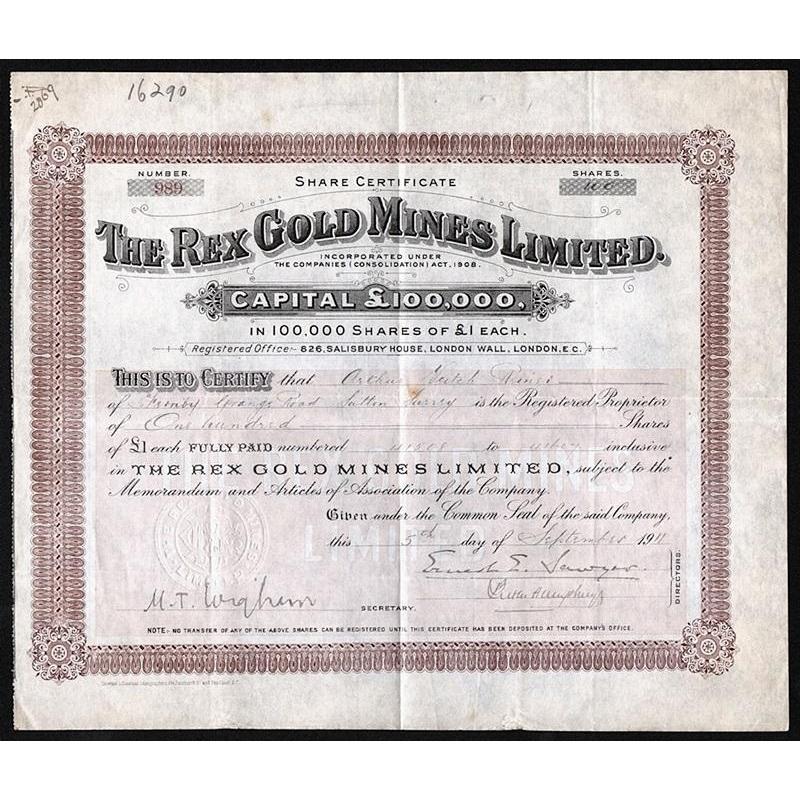 2069
16290
NUMBER.
989
SHARE CERTIFICATE
SHARES.
100
THE REX GOLD MINES LIMITED.
INCORPORATED UNDER
THE COMPANIES (CONSOLIDATION) ACT, 1908.
CAPITAL £100,000,
IN 100,000 SHARES OF £1 EACH.
Registered Office:- 826, SALISBURY HOUSE, LONDON WALL, LONDON, E.C.
THIS IS TO CERTIFY that Arthur
of Grange Road Sutton Surrey is the Registered Proprietor
of One hundred Shares
of £1 each FULLY PAID numbered to inclusive
in THE REX GOLD MINES LIMITED, subject to the
Memorandum and Articles of Association of the Company.
Given under the Common Seal of the said Company,
this 5th day of September 1911
Ernest E. Sawyer
Humphrys
DIRECTORS.
M.T. Wigham
SECRETARY.
NOTE:- NO TRANSFER OF ANY OF THE ABOVE SHARES CAN BE REGISTERED UNTIL THIS CERTIFICATE HAS BEEN DEPOSITED AT THE COMPANY'S OFFICE.